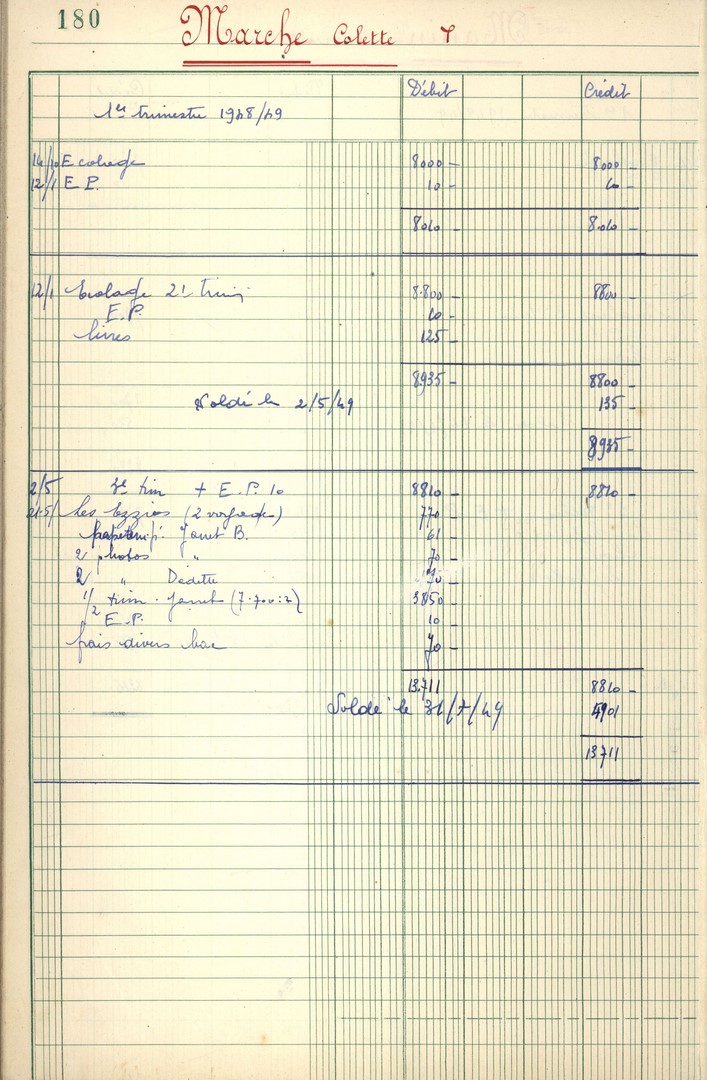 180
Marche Colette 7
Débit Crédit
1er trimestre 1948/49
14/10 Ecolage 8000 - 8000 -
12/1 E P. 10 - 10 -
8010 - 8010 -
12/1 Ecolage 2e trim 8.800 - 8800 -
E.P. 10 -
livres 125 -
8935 - 8800 -
Soldé le 2/5/49 135 -
8935 -
2/5 3e trim + E.P. 10 8810 - 8810 -
21.5/ Les (2 voyages) 770 -
Janet B. 61 -
2 photos " 70 -
2 " Dédette 70 -
1/2 trim. Janet (7.700:2) 3850 -
E.P. 10 -
frais divers bac 70 -
13.711 8810 -
Soldé le 31/7/49 4901
13711